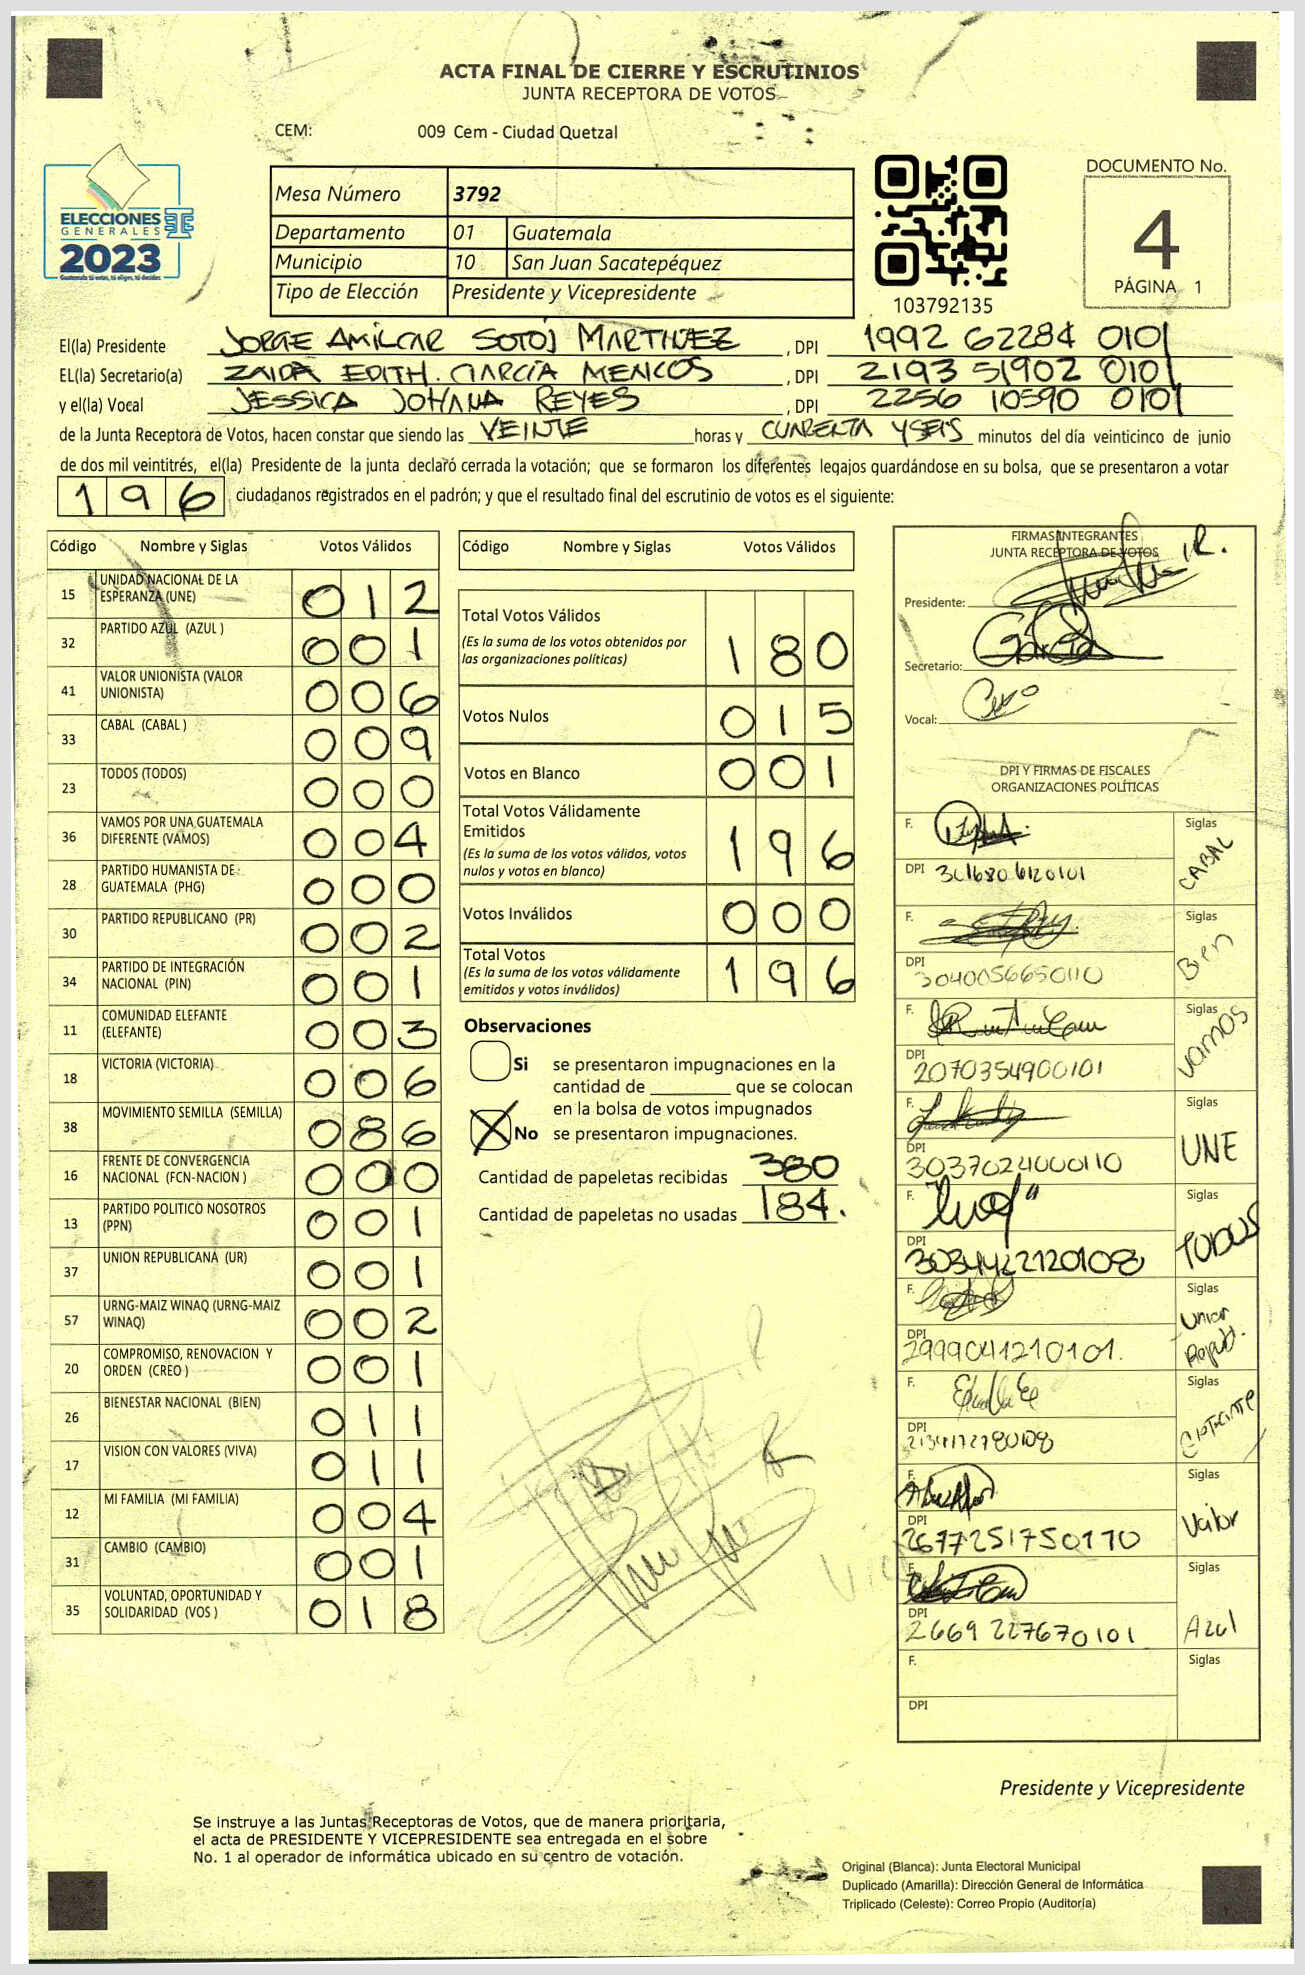 ACTA FINAL DE CIERRE Y ESCRUTINIOS
JUNTA RECEPTORA DE VOTOS
CEM: 009 Cem - Ciudad Quetzal
ELECCIONES
GENERALES
2023
Guatemala tú votas, tú eliges, tú decides
Mesa Número 3792
Departamento 01 Guatemala
Municipio 10 San Juan Sacatepéquez
Tipo de Elección Presidente y Vicepresidente
103792135
DOCUMENTO No.
4
PÁGINA 1
El(la) Presidente JORGE AMILCAR SOTOJ MARTINEZ, DPI 1992 62284 0101
EL(la) Secretario(a) ZAIDA EDITH. GARCÍA MENCOS, DPI 2193 51902 0101
y el(la) Vocal JESSICA JOHANA REYES, DPI 2256 10590 0101
de la Junta Receptora de Votos, hacen constar que siendo las VEINTE horas y CUARENTA Y SEIS minutos del día veinticinco de junio
de dos mil veintitrés, el(la) Presidente de la junta declaró cerrada la votación; que se formaron los diferentes legajos guardándose en su bolsa, que se presentaron a votar
196 ciudadanos registrados en el padrón; y que el resultado final del escrutinio de votos es el siguiente:
Código Nombre y Siglas Votos Válidos
15 UNIDAD NACIONAL DE LA ESPERANZA (UNE) 012
32 PARTIDO AZUL (AZUL ) 001
41 VALOR UNIONISTA (VALOR UNIONISTA) 006
33 CABAL (CABAL ) 009
23 TODOS (TODOS) 000
36 VAMOS POR UNA GUATEMALA DIFERENTE (VAMOS) 004
28 PARTIDO HUMANISTA DE GUATEMALA (PHG) 000
30 PARTIDO REPUBLICANO (PR) 002
34 PARTIDO DE INTEGRACIÓN NACIONAL (PIN) 001
11 COMUNIDAD ELEFANTE (ELEFANTE) 003
18 VICTORIA (VICTORIA) 006
38 MOVIMIENTO SEMILLA (SEMILLA) 086
16 FRENTE DE CONVERGENCIA NACIONAL (FCN-NACION ) 000
13 PARTIDO POLITICO NOSOTROS (PPN) 001
37 UNION REPUBLICANA (UR) 001
57 URNG-MAIZ WINAQ (URNG-MAIZ WINAQ) 002
20 COMPROMISO, RENOVACION Y ORDEN (CREO ) 001
26 BIENESTAR NACIONAL (BIEN) 011
17 VISION CON VALORES (VIVA) 011
12 MI FAMILIA (MI FAMILIA) 004
31 CAMBIO (CAMBIO) 001
35 VOLUNTAD, OPORTUNIDAD Y SOLIDARIDAD (VOS ) 018
Código Nombre y Siglas Votos Válidos
Total Votos Válidos 180
(Es la suma de los votos obtenidos por
las organizaciones políticas)
Votos Nulos 015
Votos en Blanco 001
Total Votos Válidamente
Emitidos 196
(Es la suma de los votos válidos, votos
nulos y votos en blanco)
Votos Inválidos 000
Total Votos 196
(Es la suma de los votos válidamente
emitidos y votos inválidos)
Observaciones
Si se presentaron impugnaciones en la
cantidad de ________ que se colocan
en la bolsa de votos impugnados
No se presentaron impugnaciones.
Cantidad de papeletas recibidas 380
Cantidad de papeletas no usadas 184.
FIRMAS INTEGRANTES
JUNTA RECEPTORA DE VOTOS
Presidente:
Secretario:
Vocal:
DPI Y FIRMAS DE FISCALES
ORGANIZACIONES POLÍTICAS
F. Siglas CABAL
DPI
F. Siglas Bien
DPI 3040056650110
F. Siglas Vamos
DPI 2070354900101
F. Siglas UNE
DPI 3037024000110
F. Siglas TODOS
DPI 3034422120108
F. Siglas Union Repub.
DPI 2999041210101.
F. Siglas
DPI
F. Siglas Valor
DPI 2677251750170
F. Siglas Azul
DPI 2669 227670101
F. Siglas
DPI
Presidente y Vicepresidente
Se instruye a las Juntas Receptoras de Votos, que de manera prioritaria,
el acta de PRESIDENTE Y VICEPRESIDENTE sea entregada en el sobre
No. 1 al operador de informática ubicado en su centro de votación.
Original (Blanca): Junta Electoral Municipal
Duplicado (Amarilla): Dirección General de Informática
Triplicado (Celeste): Correo Propio (Auditoría)